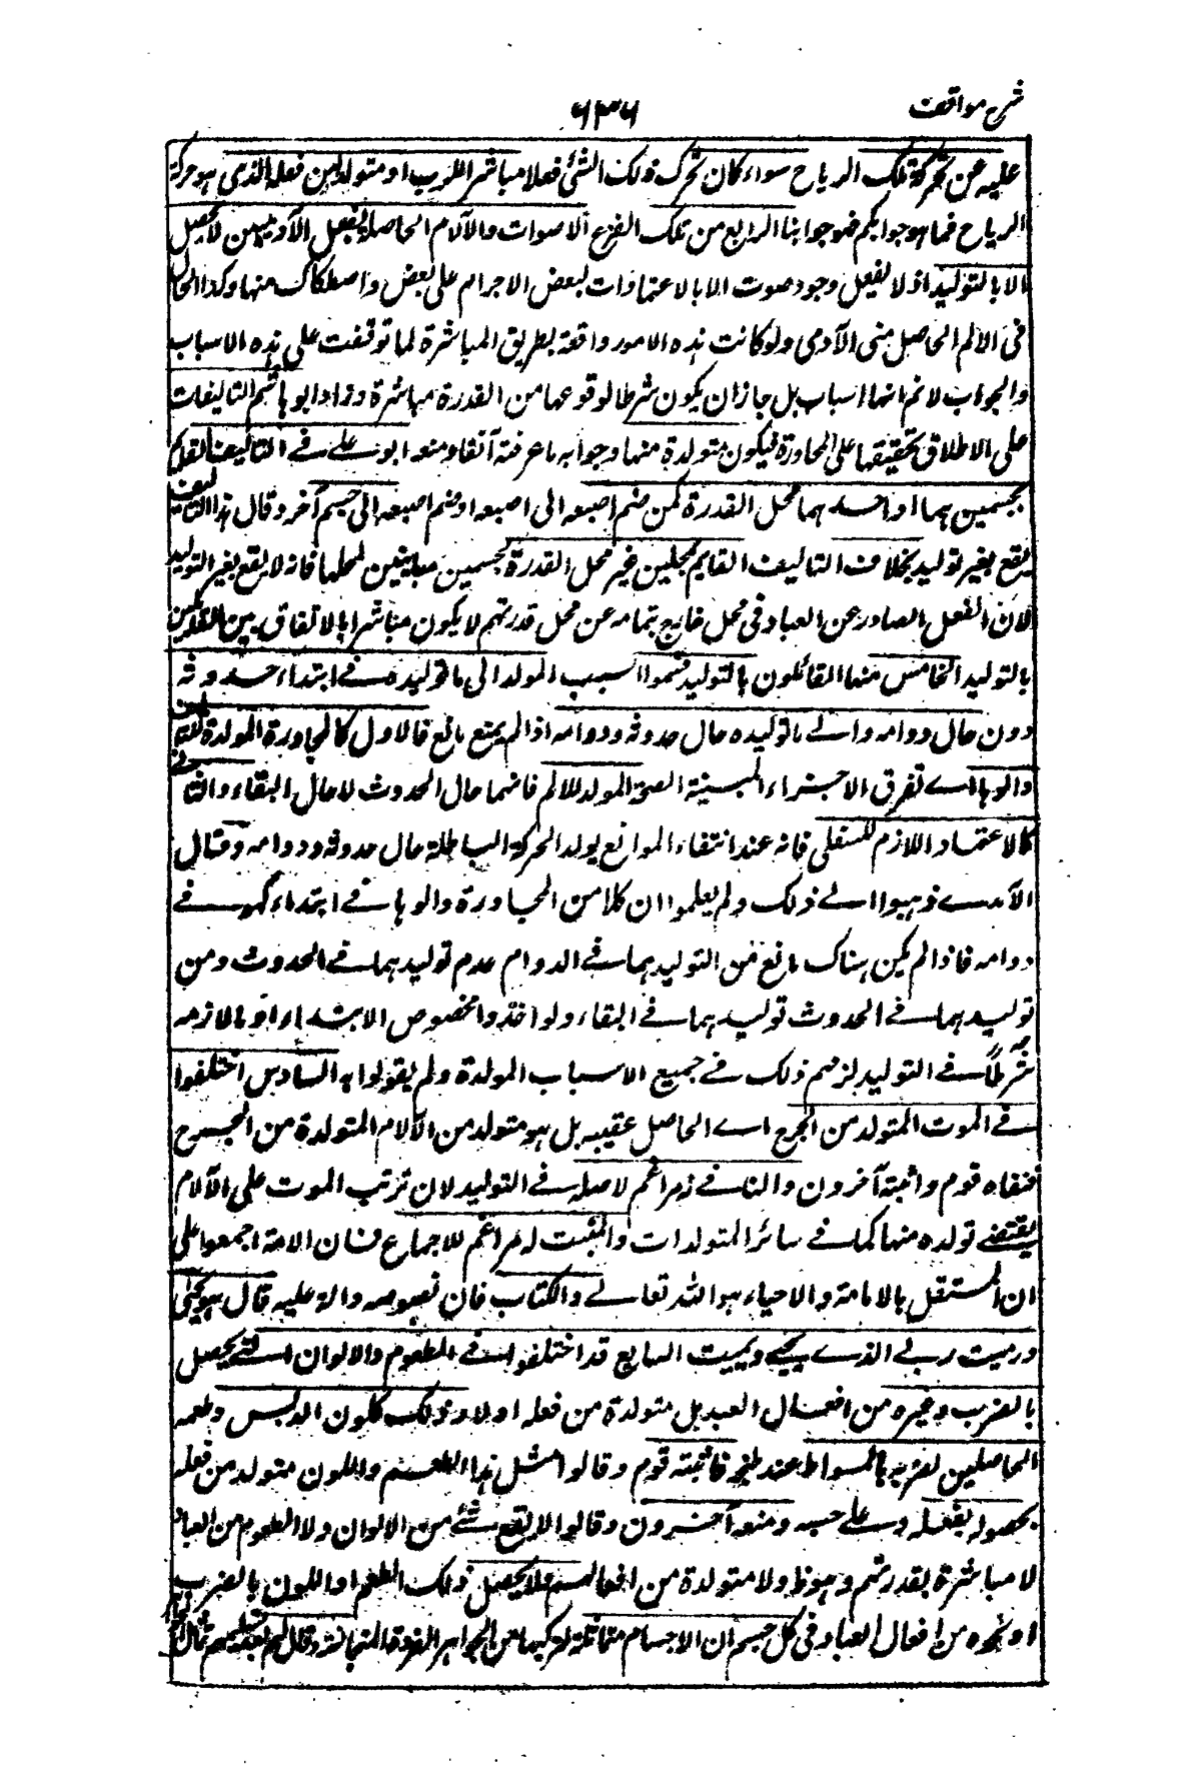 شرح مواقف
٦٣٦
عليه عن تحركه تلك الرياح سواء كان تحرك ذلك الشئ فعلا مباشرا للرب او متولدا من فعله الذى هو حركة
الرياح فما هو جوابكم فهو جوابنا الرابع من تلك الفروع الاصوات والآلام الحاصلة بفعل الآدميين لا تحصل
الا بالتوليد اذ لا يعقل وجود صوت الا بالاعتمادات لبعض الاجرام على بعض واصطكاك منها وكذا الحال
فى الالم الحاصل منى الآدمى ولو كانت هذه الامور واقعة بطريق المباشرة لما توقفت على هذه الاسباب
والجواب لا نم انها اسباب بل جاز ان يكون شرطا لوقوعها من القدرة مباشرة وزاد ابو هاشم التاليفات
على الاطلاق لتحققها على المجاورة فيكون متولدة منها وجوابه ما عرفته آنفا ومنعه ابو على فى التاليف القايم
بجسمين هما او احدهما محل القدرة كمن ضم اصبعه الى اصبعه او ضم اصبعه الى جسم آخر وقال هذا التاليف
يقع بغير توليد بخلاف التاليف القايم بمحلين غير محل القدرة كجسمين مباينين لمحلها فانه لا يقع بغير التوليد
لان الفعل الصادر عن العباد فى محل خارج بتمامه عن محل قدرتهم لا يكون مباشرا بالاتفاق بين القائلين
بالتوليد الخامس منها القائلون بالتوليد قسموا السبب المولد الى ما توليده فى ابتداء حدوثه
دون حال دوامه والى ما توليده حال حدوثه ودوامه اذا لم يمنع مانع فالاول كالمجاورة المولدة للتاليف
والوها اى تفرق الاجزاء المبنية الصحة المولد للالم فانهما حال الحدوث لا حال البقاء والثانى
كالاعتماد اللازم السفلى فانه عند انتفاء الموانع يولد الحركة الهابطة حال حدوثه ودوامه وقال
الآمدى ذهبوا الى ذلك ولم يعلموا ان كلا من المجاورة والوها فى ابتدائه كهو فى
دوامه فاذا لم يكن هناك مانع من التوليد لزمها فى الدوام عدم توليدهما فى الحدوث ومن
توليدهما فى الحدوث توليدهما فى البقاء ولو اخذوا خصوص الابتداء او ملازمه
شرطا فى التوليد لزمهم ذلك فى جميع الاسباب المولدة ولم يقولوا به السادس اختلفوا
فى الموت المتولد من الجرح اى الحاصل عقيبه بل هو متولد من الآلام المتولدة من الجرح
فنفاه قوم واثبته آخرون والنافى مراغم لاصله فى التوليد لان ترتب الموت على الآلام
يقتضى تولده منها كما فى سائر المتولدات والمثبت له مراغم للاجماع فان الامة اجمعوا على
ان المستقل بالاماتة والاحياء هو الله تعالى والكتاب فان نصوصه دالة عليه قال هو يحيى
ويميت ربى الذى يحيى ويميت السابع قد اختلفوا فى الطعوم والالوان التى تحصل
بالضرب وغيره من افعال العبد هل متولدة من فعله او لا وذلك كلون الدبس وطعمه
الحاصلين بضربه بالمسواط عند طبخه فاثبته قوم وقالوا مثل هذا الطعم واللون متولد من فعله
بحصوله بفعله وعلى حسبه ومنعه آخرون وقالوا لا يقع شئ من الالوان ولا الطعوم من العباد
لا مباشرة بقدرتهم وهو ظ ولا متولدة من افعالهم ولا يحصل ذلك الطعم واللون بالضرب
او نحوه من افعال العباد فى كل جسم ان الاجسام متماثلة لتركبها من الجواهر الفردة المتجانسة وقال لهم